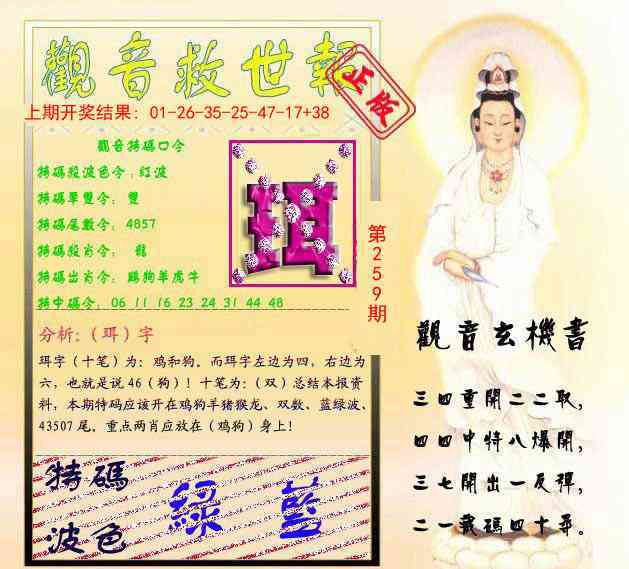 觀音救世報
正版
上期开奖结果：01-26-35-25-47-17+38
觀音特碼口令
特碼殺波色令：红波
特碼單雙令： 雙
特碼尾數令： 4857
特碼殺肖令： 龍
特碼出肖令： 鷄狗羊虎牛
特中碼令：06 11 16 23 24 31 44 48
珥
第259期
分析：（珥）字
珥字（十笔）为：鸡和狗。而珥字左边为四，右边为
六，也就是说 46（狗）！十笔为：（双）总结本报资
料，本期特码应该开在鸡狗羊猪猴龙、双数、蓝绿波、
43507 尾。重点两肖应放在（鸡狗）身上！
特碼
波色
綠 藍
觀音玄機書
三四重開二二取，
四四中特八爆開，
三七開出一反彈，
二一載碼四十尋。